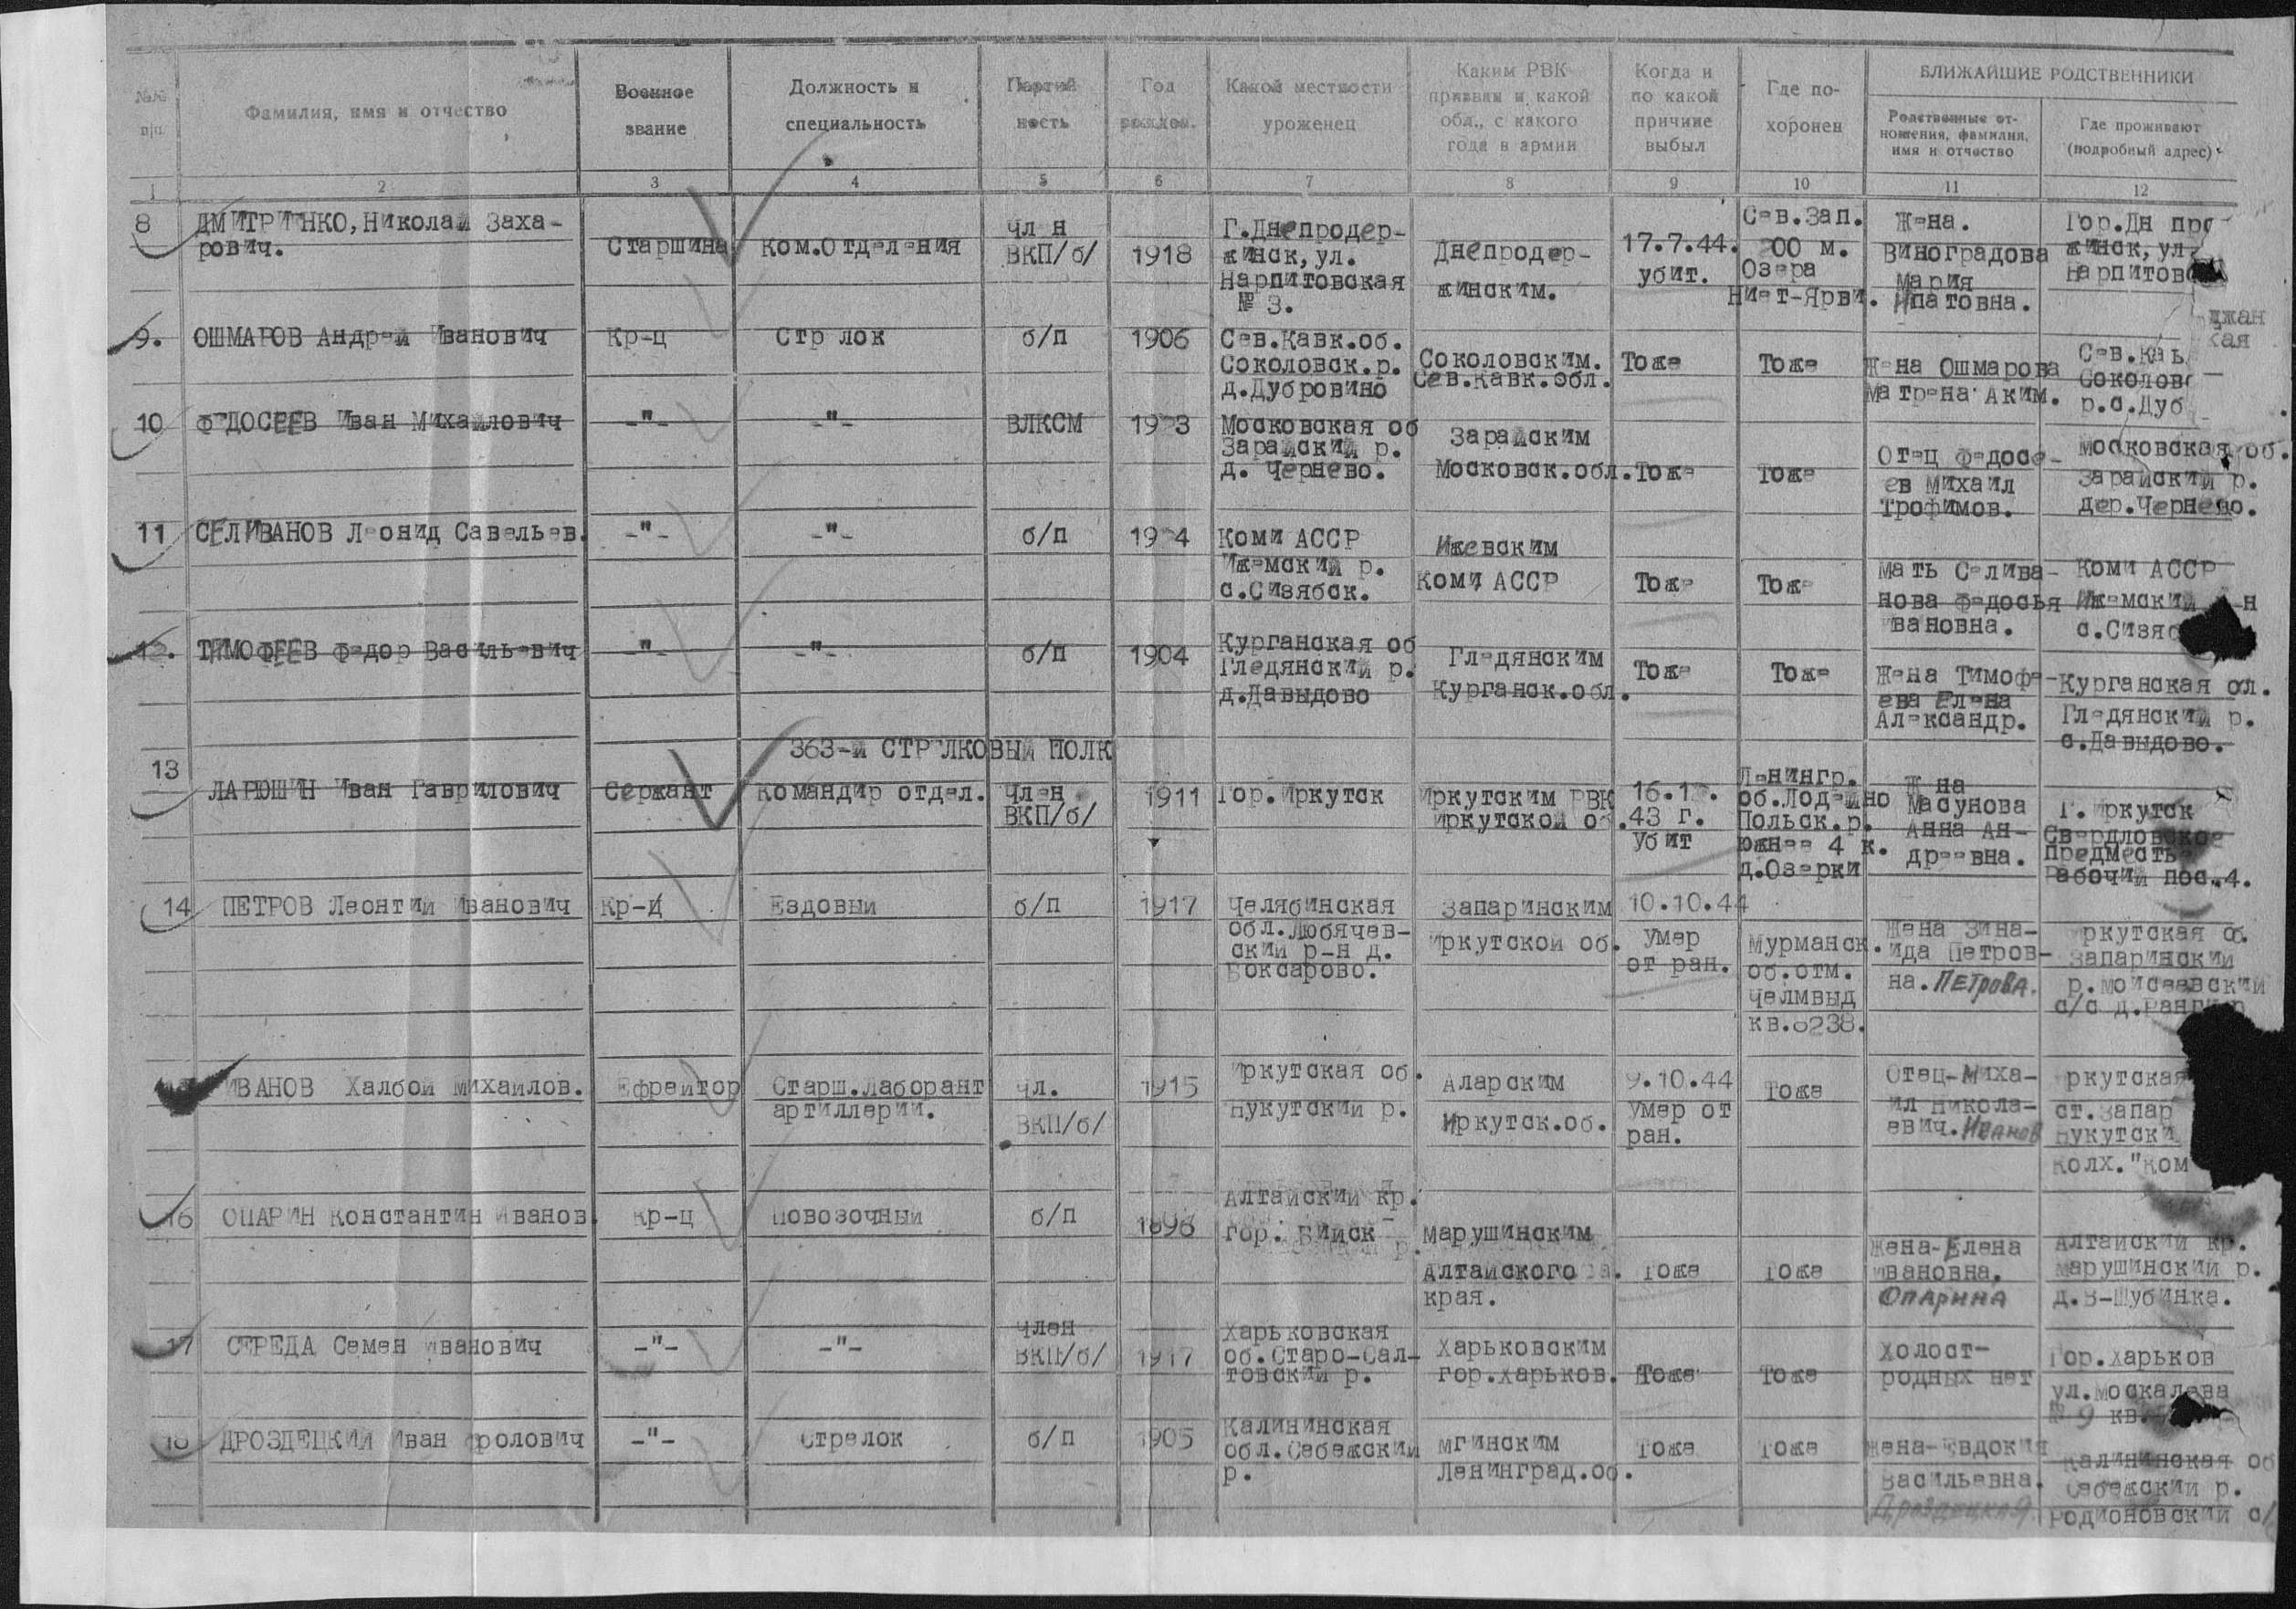 №№ п/п
Фамилия, имя и отчество
Военное звание
Должность и специальность
Партийность
Год рожден.
Какой местности уроженец
Каким РВК призван и какой обл., с какого года в армии
Когда и по какой причине выбыл
Где похоронен
БЛИЖАЙШИЕ РОДСТВЕННИКИ
Родственные отношения, фамилия, имя и отчество
Где проживают (подробный адрес)
1 2 3 4 5 6 7 8 9 10 11 12
8 ДМИТРИЕНКО, Николай Заха-
рович.
Старшина
Ком.Отделения
Чл н
ВКП/б/
1918
Г.Днепродер-
жинск, ул.
Нарпитовская
№ 3.
Днепродер-
жинским.
17.7.44.
убит.
Сев.Зап.
200 м.
Озера
Ниет-Ярви.
Жена.
Виноградова
Мария
Ипатовна.
Гор.Дн про
жинск, ул
Нарпитов
9. ОШМАРОВ Андрей Иванович
Кр-ц
Стр лок
б/п
1906
Сев.Кавк.об.
Соколовск.р.
д.Дубровино
Соколовским.
Сев.Кавк.обл.
Тоже
Тоже
Жена Ошмарова
Матрена Аким.
Сев.Кав
Соколов
р.с.Дуб
10 ФЕДОСЕЕВ Иван Михайлович
-"-
-"-
ВЛКСМ
1923
Московская об
Зарайский р.
д. Чернево.
Зарайским
Московск.обл.
Тоже
Тоже
Отец Федосе-
ев Михаил
Трофимов.
Московская об.
Зарайский р.
дер.Чернево.
11 СЕЛИВАНОВ Леонид Савельев.
-"-
-"-
б/п
1924
Коми АССР
Ижемский р.
с.Сизябск.
Ижевским
Коми АССР
Тоже
Тоже
Мать Селива-
нова Федосья
Ивановна.
Коми АССР
Ижемский н
с.Сизяб
12. ТИМОФЕЕВ Федор Васильевич
-"-
-"-
б/п
1904
Курганская об
Гледянский р.
д.Давыдово
Гледянским
Курганск.обл.
Тоже
Тоже
Жена Тимофе-
ева Елена
Александр.
Курганская ол.
Гледянский р.
с.Давыдово.
363-й СТРЕЛКОВЫЙ ПОЛК
13 ЛАРЮШИН Иван Гаврилович
Сержант
Командир отдел.
Член
ВКП/б/
1911
Гор.Иркутск
Иркутским РВК
Иркутской об.
43 г.
Убит
Ленингр.
об.Лодейно
Польск.р.
южнее 4 к.
д.Озерки
Ж на
Масунова
Анна Ан-
дреевна.
Г. Иркутск
Свердловское
Предместье
Рабочий пос.4.
14 ПЕТРОВ Леонтий Иванович
Кр-ц
Ездовый
б/п
1917
Челябинская
обл.Любячев-
ский р-н д.
Боксарово.
Запаринским
Иркутской об.
10.10.44
Умер
от ран.
Мурманск.
об.отм.
Челмвыд
кв.8238.
Жена Зина-
ида Петров-
на. ПЕТРОВА.
Иркутская об.
Запаринский
р.Моисеевский
с/с
ИВАНОВ Халбой Михайлов.
Ефрейтор
Старш.Лаборант
артиллерии.
Чл.
ВКП/б/
1915
Иркутская об.
Нукутский р.
Аларским
Иркутск.об.
9.10.44
Умер от
ран.
Тоже
Отец-Миха-
ил Никола-
евич. ИВАНОВ
Иркутская
ст.Запар
Нукутски
колх."Ком
16 ОПАРИН Константин Иванов.
Кр-ц
Повозочный
б/п
1896
Алтайский кр.
гор. Бийск
Марушинским
Алтайского
края.
Тоже
Тоже
Жена-Елена
Ивановна.
ОПАРИНА
Алтайский кр.
Марушинский р.
д.В-Шубинка.
17 СЕРЕДА Семен Иванович
-"-
-"-
Член
ВКП/б/
1917
Харьковская
об.Старо-Сал-
товский р.
Харьковским
гор.Харьков.
Тоже
Тоже
Холост-
родных нет
Гор.Харьков
ул.Москалева
№ 9 кв.
18 ДРОЗДЕЦКИЙ Иван Фролович
-"-
Стрелок
б/п
1905
Калининская
обл.Себежский
р.
Мгинским
Ленинград.об.
Тоже
Тоже
Жена-Евдокия
Васильевна.
Дроздецкая.
Калининская об
Себежский р.
Родионовский с/